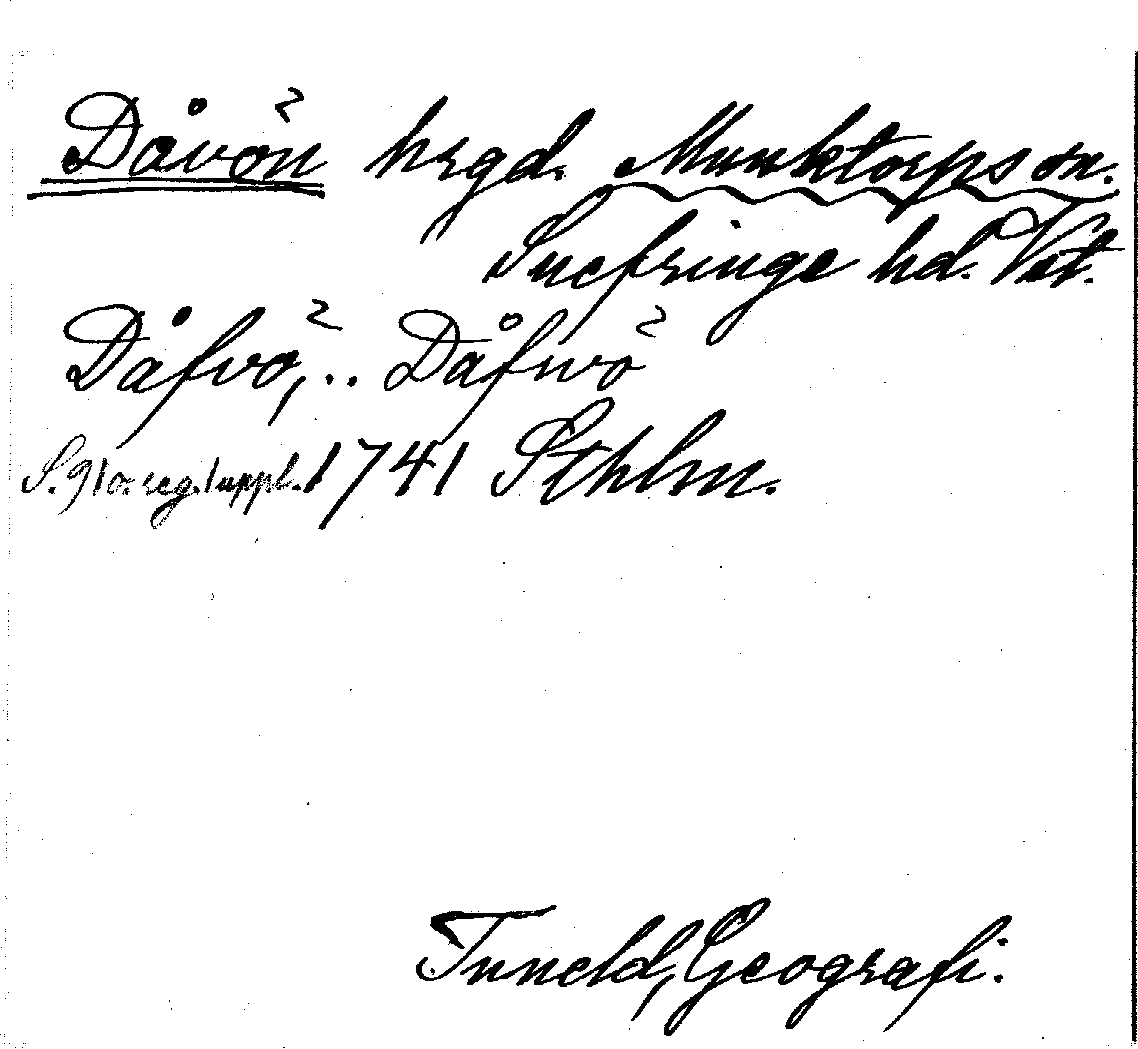 Dåvön hrgd. Munktorps sn.
Snefringe hd. Vst.
Dåfvö, .. Dåfwö
S. 91 o. reg. 1 uppl. 1741 Sthlm.
Tuneld, Geografi.